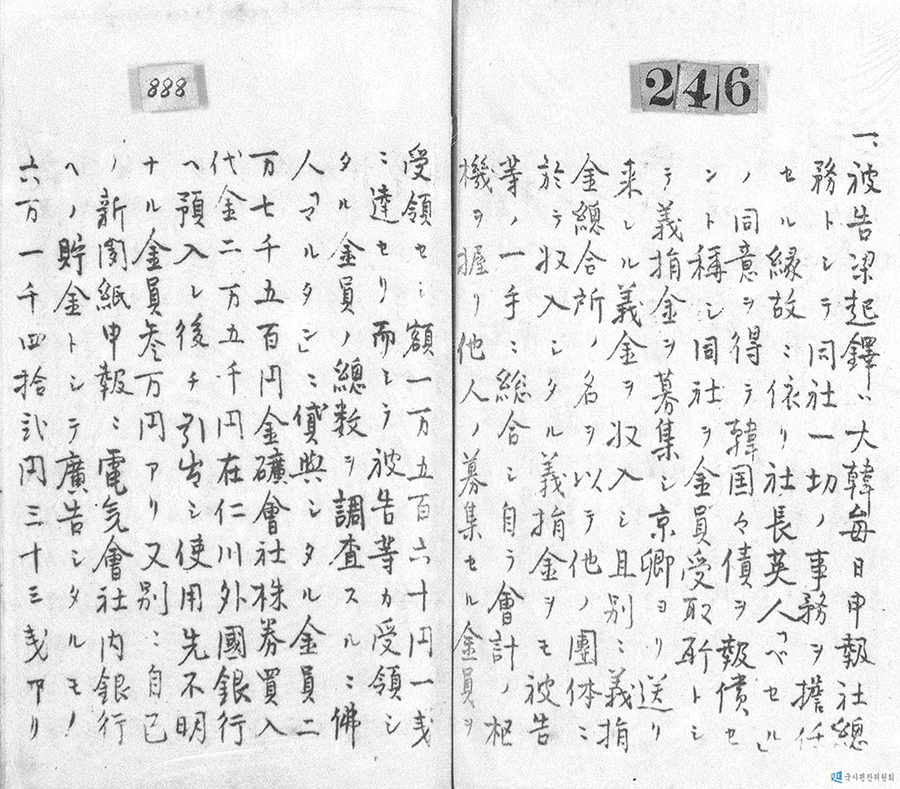 246
一、被告梁起鐸ハ大韓毎日申報社總
務トシテ同社一切ノ事務ヲ擔任
セル縁故ニ依リ社長英人「ベセル」
ノ同意ヲ得テ韓国々債ヲ報償セ
ント稱シ同社ヲ金員受取所トシ
テ義捐金ヲ募集シ京郷ヨリ送リ
来レル義金ヲ収入シ且別ニ義捐
金總合所ノ名ヲ以テ他ノ團体ニ
於テ収入シタル義捐金ヲモ被告
等ノ一手ニ総合シ自ラ會計ノ枢
機ヲ握リ他人ノ募集セル金員ヲ
888
受領セシ額一万五百六十円一戔
ニ達セリ而シテ被告等カ受領シ
タル金員ノ總数ヲ調査スルニ佛
人「マルタン」ニ貸與シタル金員二
万七千五百円金礦會社株券買入
代金二万五千円在仁川外國銀行
ヘ預入レ後チ引出シ使用先不明
ナル金員叁万円アリ又別ニ自己
ノ新聞紙申報ニ電気會社内銀行
ヘノ貯金トシテ廣告シタルモノ
六万一千四拾弐円三十三戔アリ
국사편찬위원회